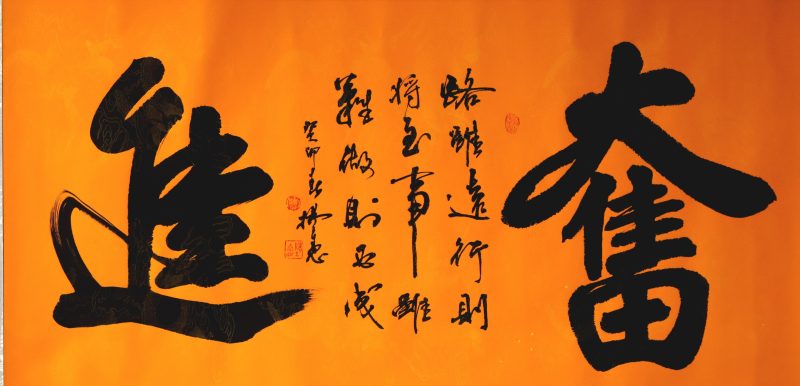 奮進
路雖遠行則
将至事雖
難做則必成
癸卯